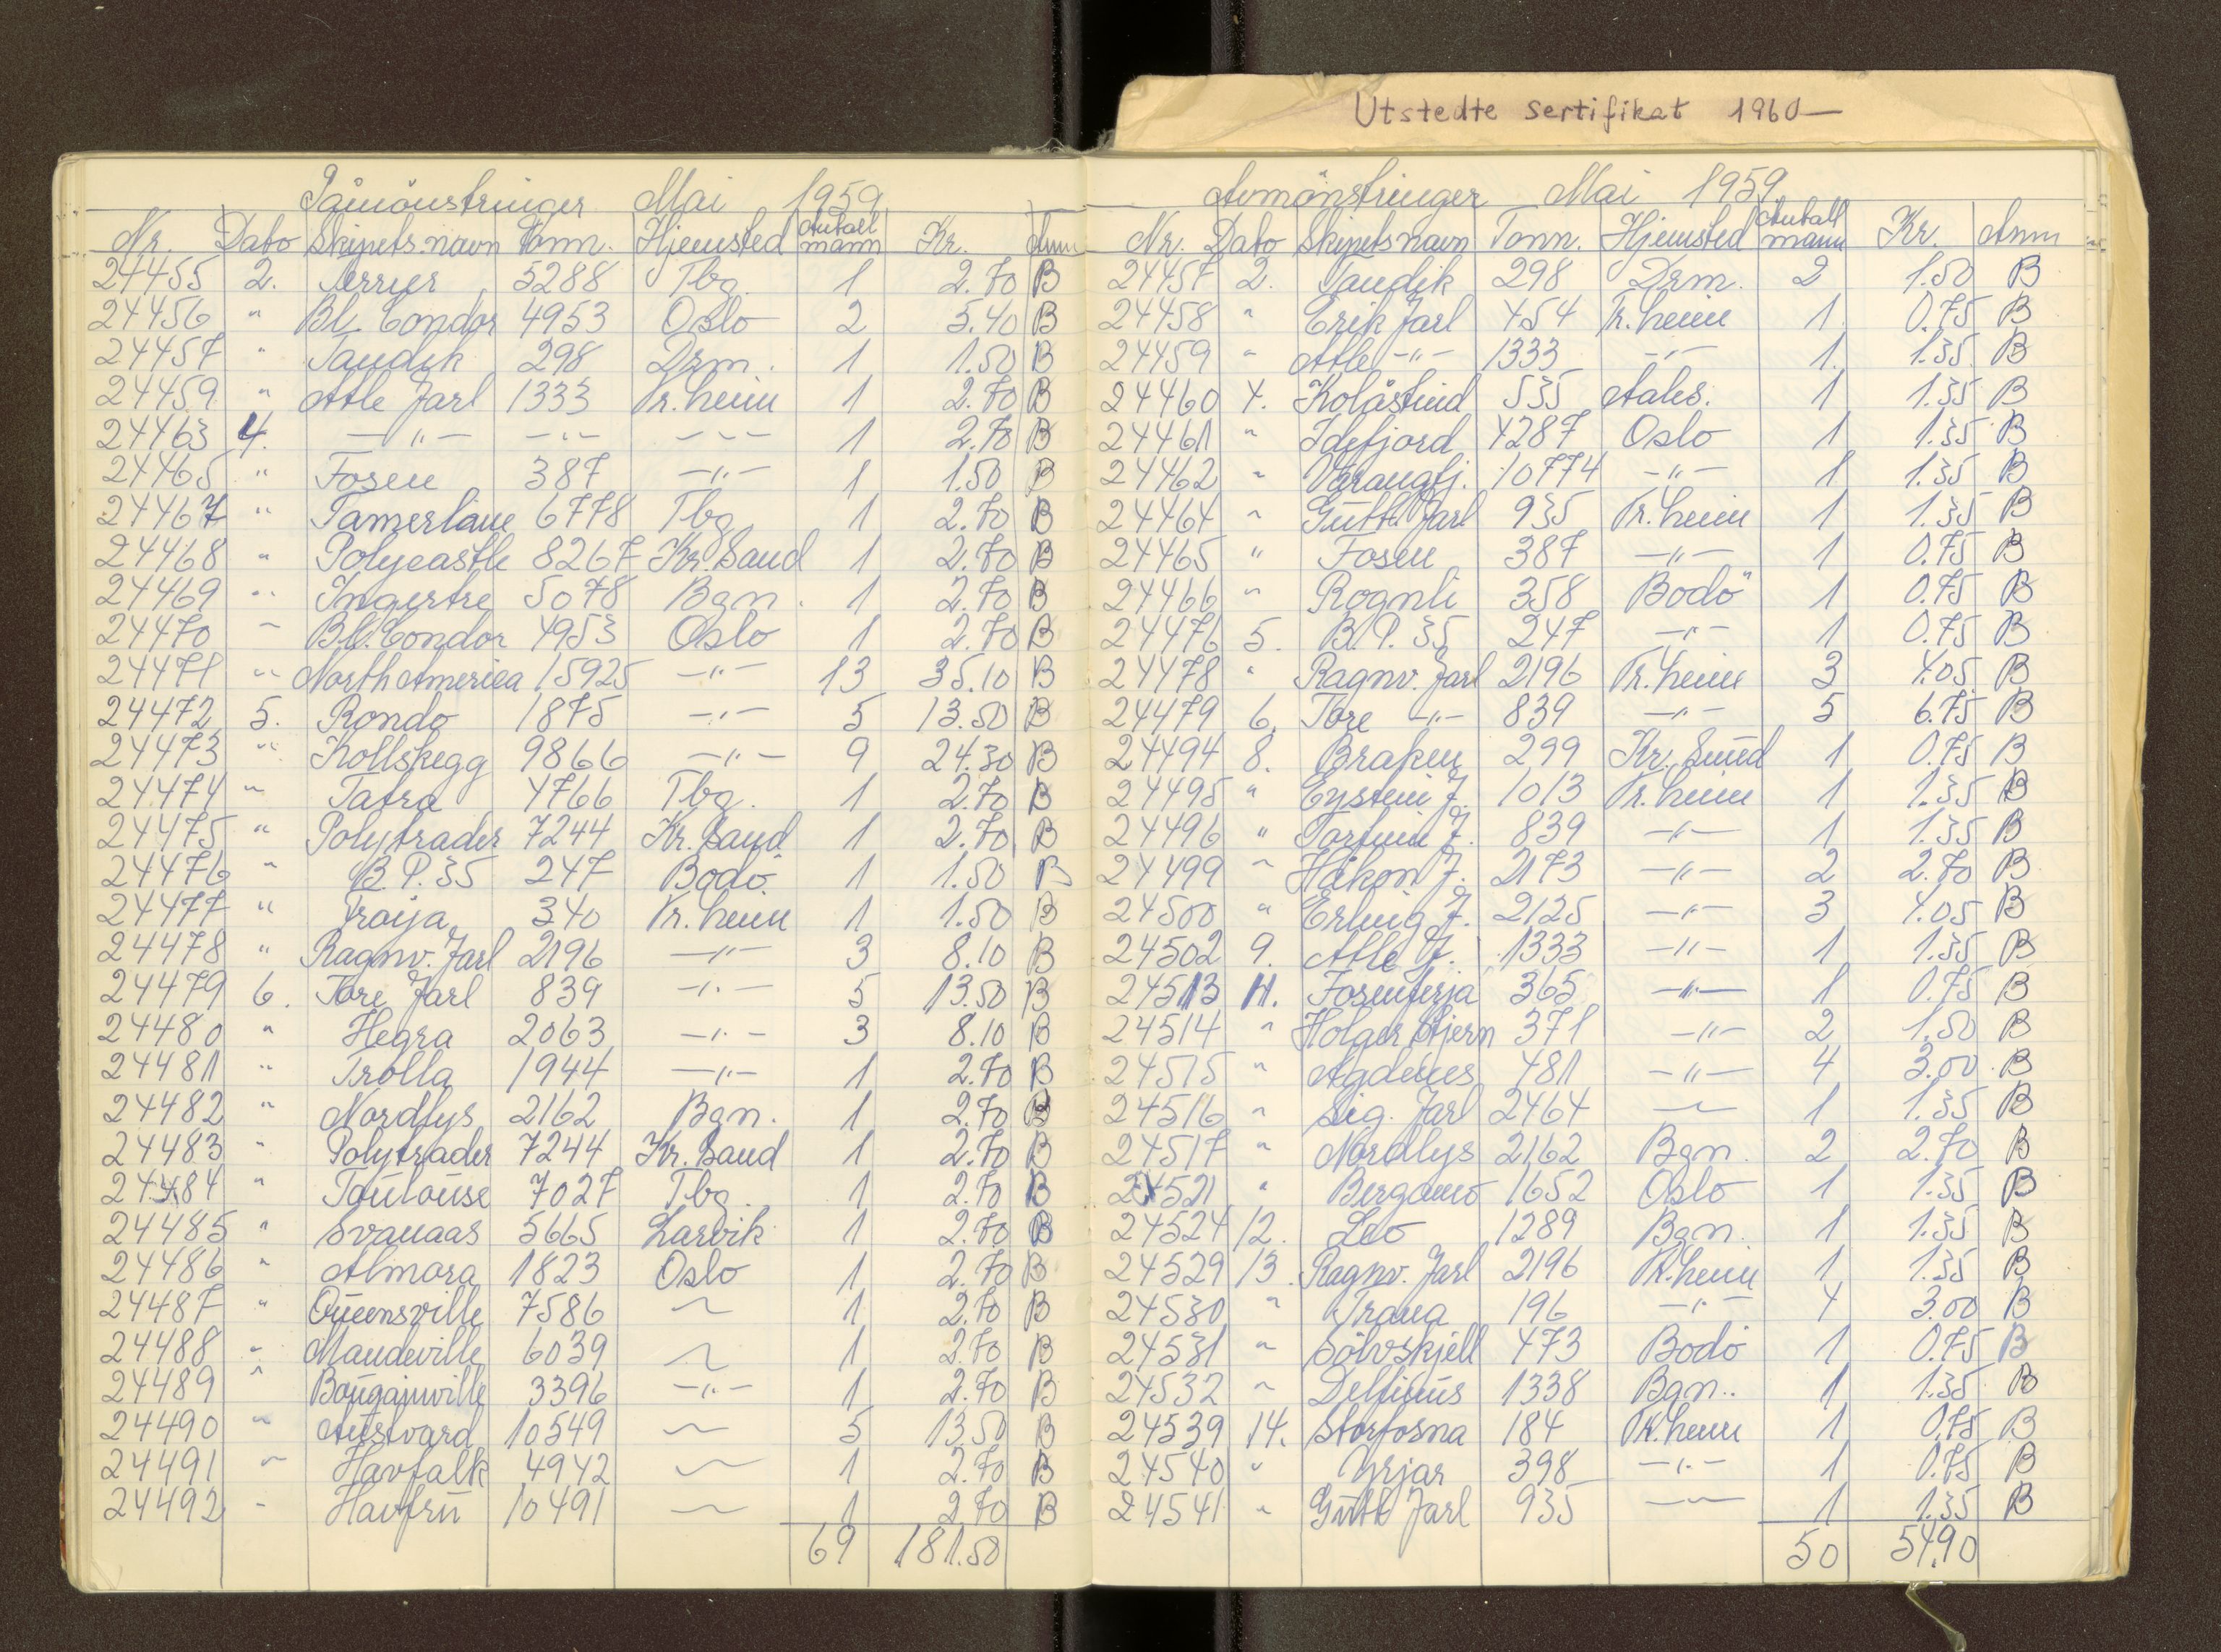 Utstedte sertifikat 1960—
Påmönstringer Mai 1959
Nr. Dato Skipets navn Tonn. Hjemsted Antall mann Kr. Anm
24455 2. Ferrier 5288 Tbg. 1 2.70 B
24456 " Bl. Condor 4953 Oslo 2 5.40 B
24457 " Taudik 298 Drm. 1 1.50 B
24459 " Atle Jarl 1333 Tr.heim 1 2.70 B
24463 4. —"— —"— —"— 1 2.70 B
24465 " Fosen 387 —"— 1 1.50 B
24467 " Tamerlane 6778 Tbg 1 2.70 B
24468 " Polycastle 8267 Kr. Sand 1 2.70 B
24469 " Ingertre 5078 Bgn. 1 2.70 B
24470 " Bl. Condor 4953 Oslo 1 2.70 B
24471 " North America 15925 —"— 13 35.10 B
24472 5. Rondo 1875 —"— 5 13.50 B
24473 " Kollskegg 9866 —"— 9 24.30 B
24474 " Tatra 4766 Tbg. 1 2.70 B
24475 " Polytrader 7244 Kr. Sand 1 2.70 B
24476 " B.P. 35 247 Bodö 1 1.50 B
24477 " Froija 340 Tr.heim 1 1.50 B
24478 " Ragnv. Jarl 2196 —"— 3 8.10 B
24479 6. Tore Jarl 839 —"— 5 13.50 B
24480 " Hegra 2063 —"— 3 8.10 B
24481 " Trolla 1944 —"— 1 2.70 B
24482 " Nordlys 2162 Bgn. 1 2.70 B
24483 " Polytrader 7244 Kr. Sand 1 2.70 B
24484 " Toulouse 7027 Tbg. 1 2.70 B
24485 " Svanaas 5665 Larvik 1 2.70 B
24486 " Almora 1823 Oslo 1 2.70 B
24487 " Queensville 7586 ~ 1 2.70 B
24488 " Mandeville 6039 ~ 1 2.70 B
24489 " Bougainville 3396 —"— 1 2.70 B
24490 " Austvard 10549 ~ 5 13.50 B
24491 " Havfalk 4942 ~ 1 2.70 B
24492 " Havfru 10491 ~ 1 2.70 B
69 181.50
Avmönstringer Mai 1959
Nr. Dato Skipets navn Tonn. Hjemsted Antall mann Kr. Anm
24457 2. Taudik 298 Drm. 2 1.50 B
24458 " Erik Jarl 454 Tr.heim 1 0.75 B
24459 " Atle —"— 1333 —"— 1 1.35 B
24460 4. Kolåstind 535 Aales. 1 1.35 B
24461 " Idefjord 4287 Oslo 1 1.35 B
24462 " Varangfj. 10774 —"— 1 1.35 B
24464 " Gutt. Jarl 935 Tr.heim 1 1.35 B
24465 " Fosen 387 —"— 1 0.75 B
24466 " Rognli 358 Bodö 1 0.75 B
24476 5. B.P. 35 247 —"— 1 0.75 B
24478 " Ragnv. Jarl 2196 Tr.heim 3 4.05 B
24479 6. Tore —"— 839 —"— 5 6.75 B
24494 8. Braken 299 Kr. Sund 1 0.75 B
24495 " Eystein J. 1013 Tr.heim 1 1.35 B
24496 " Torfinn J. 839 —"— 1 1.35 B
24499 " Håkon J. 2173 —"— 2 2.70 B
24500 " Erling J. 2125 —"— 3 4.05 B
24502 9. Atle J. 1333 —"— 1 1.35 B
24513 11. Fosenferja 365 —"— 1 0.75 B
24514 " Holger Stjern 371 —"— 2 1.50 B
24515 " Agdenes 481 —"— 4 3.00 B
24516 " Sig. Jarl 2464 ~ 1 1.35 B
24517 " Nordlys 2162 Bgn. 2 2.70 B
24521 " Bergamo 1652 Oslo 1 1.35 B
24524 12. Leo 1289 Bgn. 1 1.35 B
24529 13. Ragnv. Jarl 2196 Tr.heim 1 1.35 B
24530 " Frana 196 —"— 4 3.00 B
24531 " Sölvskjell 473 Bodö 1 0.75 B
24532 " Delfinus 1338 Bgn. 1 1.35 B
24539 14. Storfosna 184 Tr.heim 1 0.75 B
24540 " Yrjar 398 —"— 1 0.75 B
24541 " Gutt. Jarl 935 —"— 1 1.35 B
50 54.90